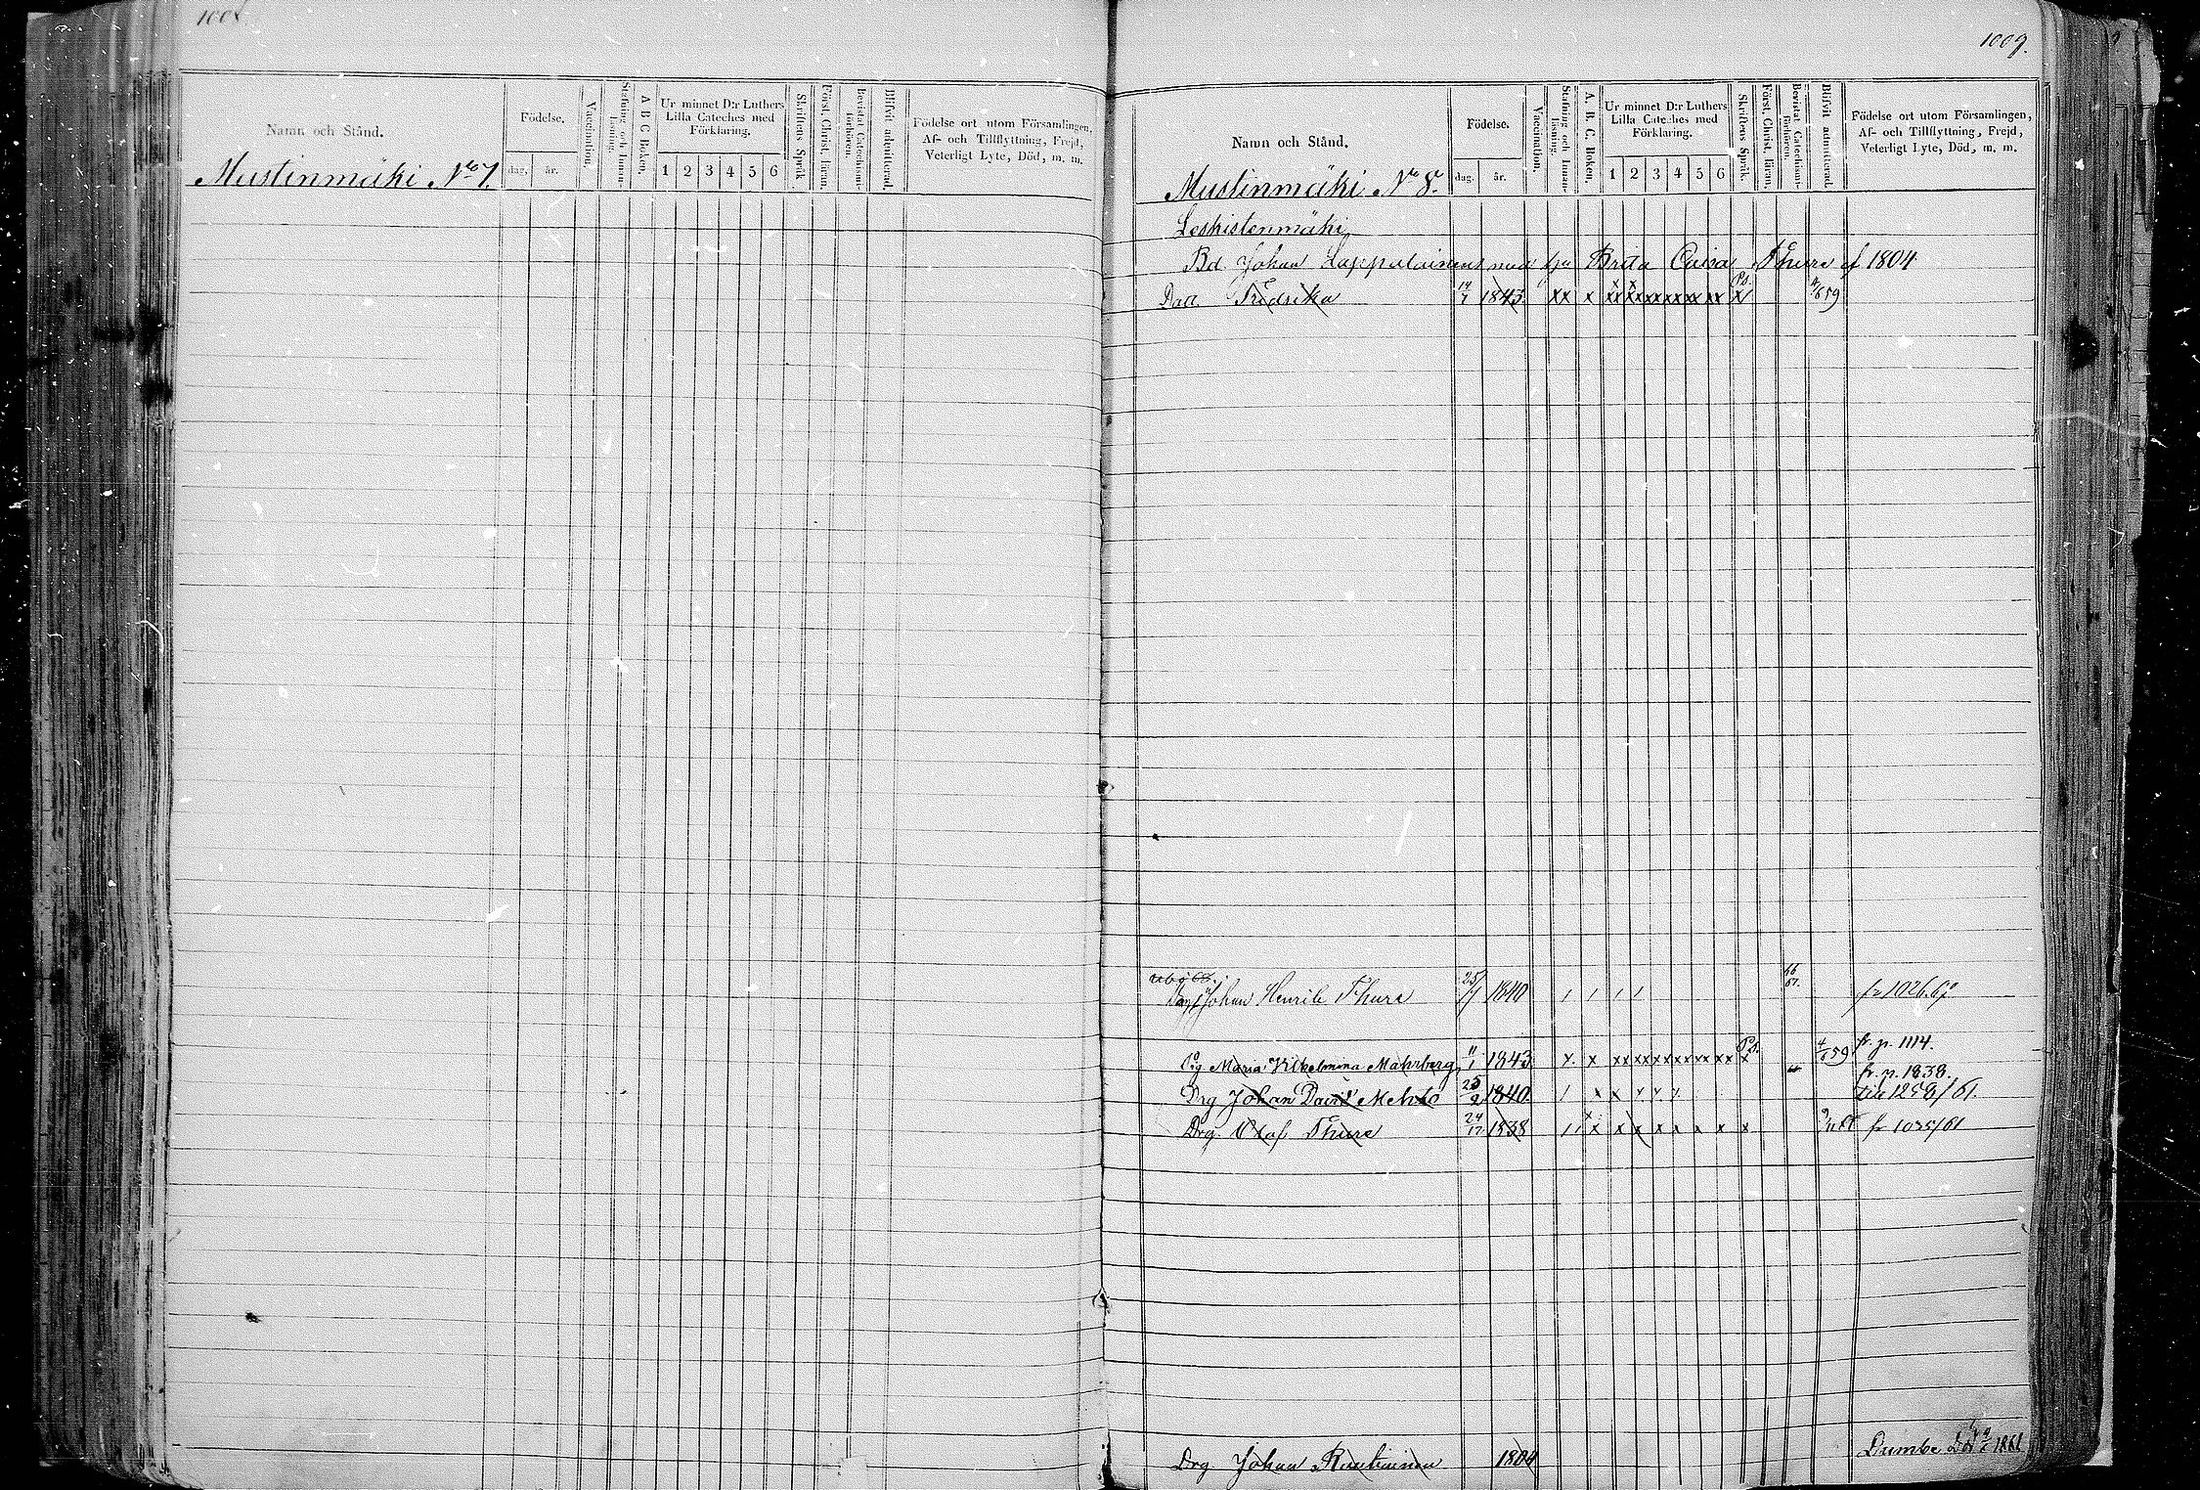 1008
Namn och Stånd.
Födelse.
dag. år.
Vaccination.
Stafning och Innan-läsning.
A B C Boken.
Ur minnet D:r Luthers Lilla Cateches med Förklaring.
1 2 3 4 5 6
Skriftens Språk.
Först. Christ. läran.
Bevistat Catechismi-förhören.
Blifvit admitterad.
Födelse ort utom Församlingen, Af- och Tillflyttning, Frejd, Veterligt Lyte, Död, m. m.
Mustinmäki No 7.
1009.
Namn och Stånd.
Födelse.
dag. år.
Vaccination.
Stafning och Innan-läsning.
A. B. C. Boken.
Ur minnet D:r Luthers Lilla Cateches med Förklaring.
1 2 3 4 5 6
Skriftens Språk.
Först. Christ. läran.
Bevistat Catechismi-förhören.
Blifvit admitterad.
Födelse ort utom Församlingen, Af- och Tillflyttning, Frejd, Veterligt Lyte, Död, m. m.
Mustinmäki No 8.
Leskistenmäki
Bd. Johan Lappalainens Brita Caisa Thure f 1804
Fredrika 14/7 1843 xx x xx xx xx xx xx xx x 4/6 59
Johan Henrik Thure 25/7 1840 fr 1026.67
Pig Maria Vilhelmina Mahrberg 11/1 1843 x x xx xx xx xx xx xx x 4/6 59 fr. p. 1114.
fr. p. 1838.
Drg Johan David Mehto 25/2 1840. x x x x till 1258/61.
Drg Olaf Thure 24/12 1838 x x x x x x x x fr 1035/61
Drg Johan Rautiainen 1804 Dumbe 1861